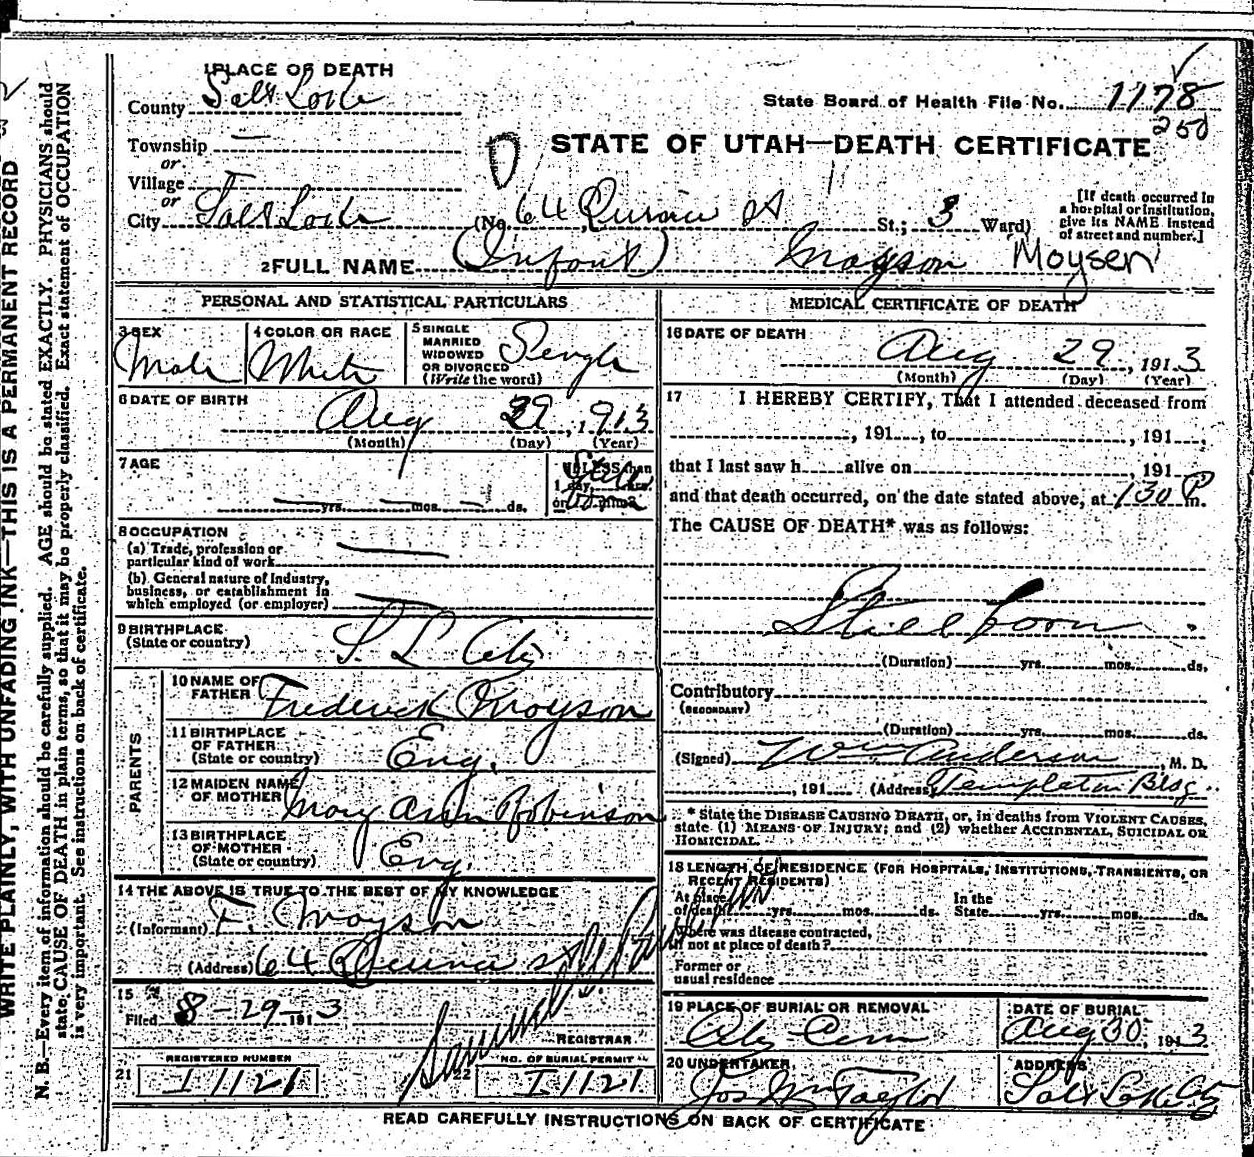 1 PLACE OF DEATH
County Salt Lake
State Board of Health File No. 1178
250
Township —
or
Village
or
STATE OF UTAH—DEATH CERTIFICATE
City Salt Lake (No. 64 St St.; 3 Ward)
[If death occurred in
a hospital or institution,
give its NAME instead
of street and number.]
2 FULL NAME (Infant) Moyson Moysen
PERSONAL AND STATISTICAL PARTICULARS
3 SEX
Male
4 COLOR OR RACE
White
5 SINGLE
MARRIED
WIDOWED
OR DIVORCED
(Write the word)
Single
6 DATE OF BIRTH
Aug 29, 1913
(Month) (Day) (Year)
7 AGE
— yrs. — mos. — ds.
If LESS than
1 day, hrs.
or min.?
Still
born
8 OCCUPATION
(a) Trade, profession or
particular kind of work —
(b) General nature of Industry,
business, or establishment in
which employed (or employer) —
9 BIRTHPLACE
(State or country)
S. L. City
PARENTS
10 NAME OF
FATHER
Frederick Moyson
11 BIRTHPLACE
OF FATHER
(State or country)
Eng.
12 MAIDEN NAME
OF MOTHER
Mary Ann Robinson
13 BIRTHPLACE
OF MOTHER
(State or country)
Eng.
14 THE ABOVE IS TRUE TO THE BEST OF MY KNOWLEDGE
(Informant) F. Moyson
(Address) 64 St
15
Filed 8-29-1913
Samuel G. Paul
REGISTRAR
REGISTERED NUMBER
21 I1121
NO. OF BURIAL PERMIT
22 I1121
MEDICAL CERTIFICATE OF DEATH
16 DATE OF DEATH
Aug 29, 1913
(Month) (Day) (Year)
17 I HEREBY CERTIFY, That I attended deceased from
, 191 , to , 191 ,
that I last saw h alive on , 191
and that death occurred, on the date stated above, at 130 P m.
The CAUSE OF DEATH* was as follows:
Stillborn
(Duration) yrs. mos. ds.
Contributory
(SECONDARY)
(Duration) yrs. mos. ds.
(Signed) Wm. Anderson, M. D.
, 191 (Address) Templeton Bldg.
* State the DISEASE CAUSING DEATH, or, in deaths from VIOLENT CAUSES,
state (1) MEANS OF INJURY; and (2) whether ACCIDENTAL, SUICIDAL OR
HOMICIDAL.
18 LENGTH OF RESIDENCE (FOR HOSPITALS, INSTITUTIONS, TRANSIENTS, OR
RECENT RESIDENTS)
At place
of death yrs. mos. ds.
In the
State yrs. mos. ds.
Where was disease contracted,
if not at place of death?
Former or
usual residence
19 PLACE OF BURIAL OR REMOVAL
City Cem
DATE OF BURIAL
Aug 30, 1913
20 UNDERTAKER
Jos Wm Taylor
ADDRESS
Salt Lake City
READ CAREFULLY INSTRUCTIONS ON BACK OF CERTIFICATE
WRITE PLAINLY, WITH UNFADING INK—THIS IS A PERMANENT RECORD
N. B.—Every item of information should be carefully supplied. AGE should be stated EXACTLY. PHYSICIANS should
state CAUSE OF DEATH in plain terms, so that it may be properly classified. Exact statement of OCCUPATION
is very important. See instructions on back of certificate.